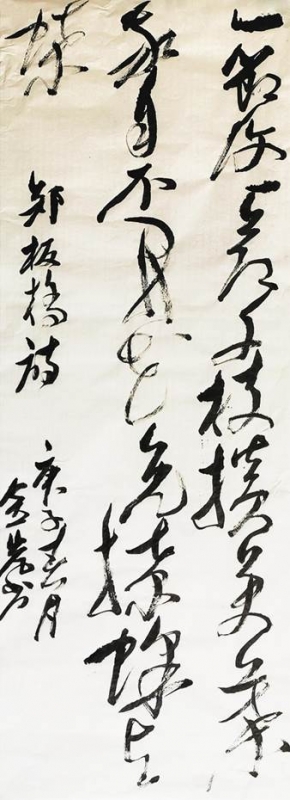 一節復一節千枝攢萬葉
我自不開花免撩蜂与
蝶
郑板橋詩
庚子春月